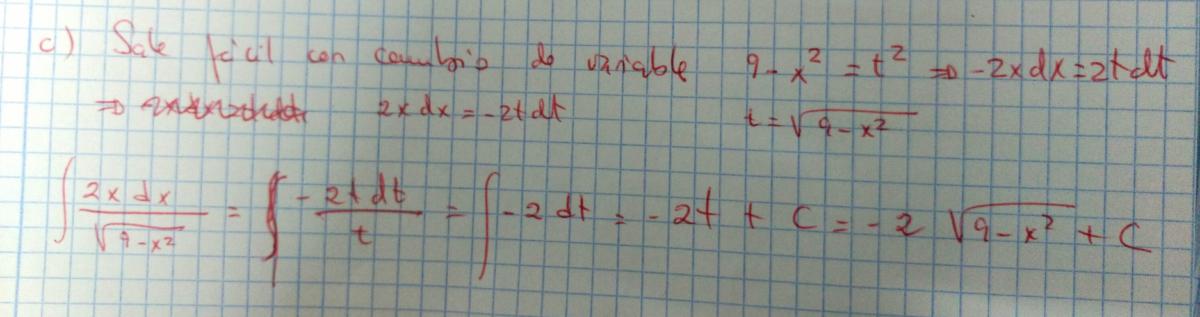 c) Sale fácil con cambio de variable 9 - x² = t² ⇒ -2x dx = 2t dt
⇒ 2x dx = -2t dt t = √(9 - x²)
∫ 2x dx / √(9 - x²) = ∫ -2t dt / t = ∫ -2 dt = -2t + C = -2 √(9 - x²) + C